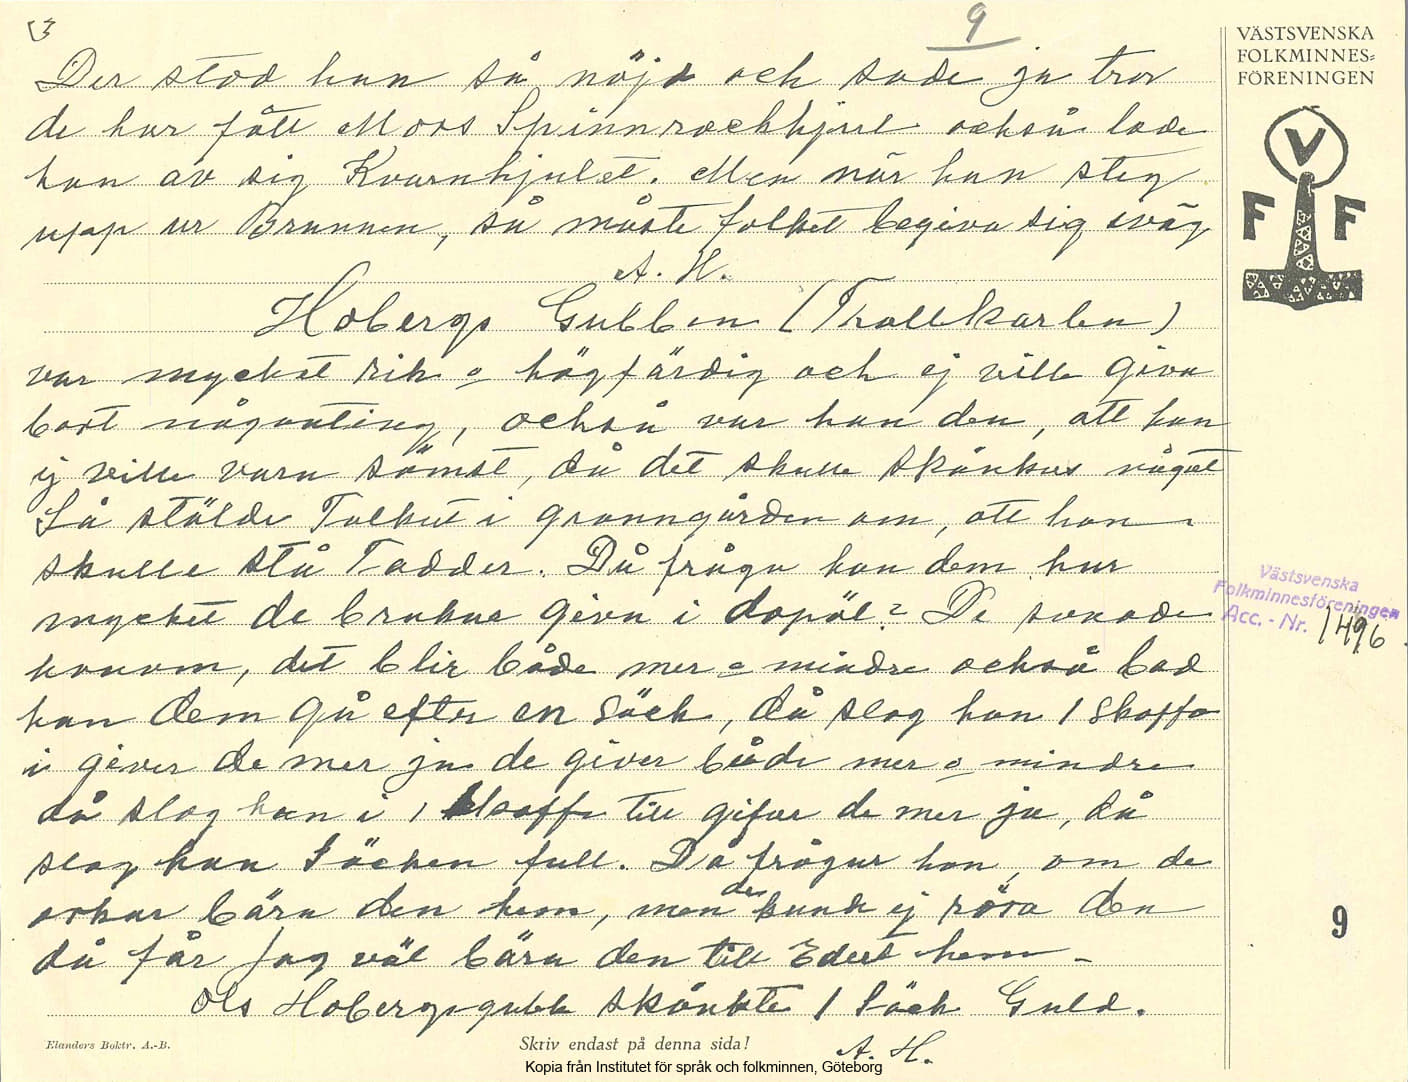 (3
9
VÄSTSVENSKA
FOLKMINNES=
FÖRENINGEN
Der stod han så nöjd och sade ja tror
de har fått Mors Spinnrockhjul också lade
han av sig Kvarnhjulet. Men när han steg
upp ur Brunnen, så måste folket begiva sig sväg
A. H.
Hobergs Gubben (Trollkarlen)
var mycket rik o högfärdig och ej ville giva
bort någonting, också var han den, att han
ej ville vara sämst, då det skulle skänkas något
Så stälde Folket i granngården om, att han
skulle stå Fadder. Då fråga han dem hur
mycket de brukar giva i dopöl? De svarade
honom, det blir både mer o mindre också bad
han dem gå efter en Säck, då slog han 1 Skoffa
i giver de mer ja de giver både mer o mindre
då slog han i 1 skoffa till gifver de mer ja, då
slog han Säcken full. Då frågar han, om de
orkar bära den hem, men de kunde ej röra den
då får Jag väl bära den till Edert hem -
Ols Hobergsgubbe skänkte 1 Säck Guld.
A. H.
V
F F
Västsvenska
Folkminnesföreningen
Acc. - Nr. 1496
9
Elanders Boktr. A.-B.
Skriv endast på denna sida!
Kopia från Institutet för språk och folkminnen, Göteborg